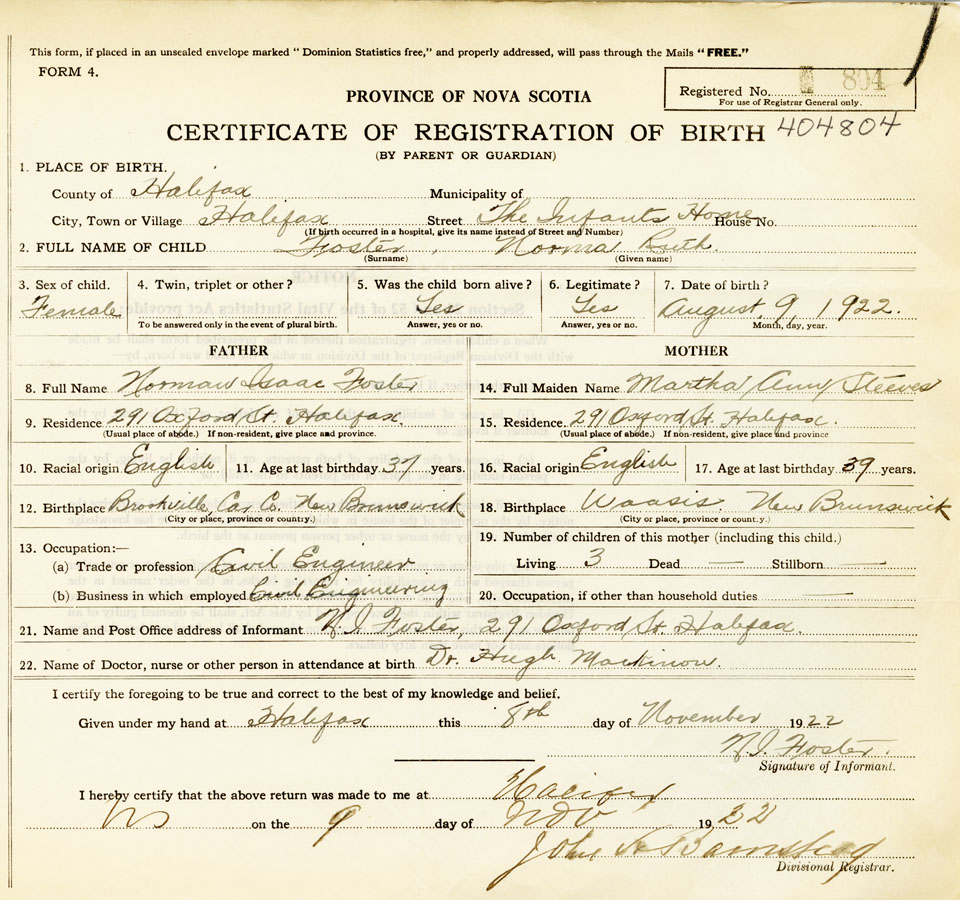 This form, if placed in an unsealed envelope marked "Dominion Statistics free," and properly addressed, will pass through the Mails "FREE."
FORM 4.
Registered No. 804
For use of Registrar General only.
PROVINCE OF NOVA SCOTIA
CERTIFICATE OF REGISTRATION OF BIRTH 404804
(BY PARENT OR GUARDIAN)
1. PLACE OF BIRTH.
County of Halifax Municipality of
City, Town or Village Halifax Street The Infants Home House No.
(If birth occurred in a hospital, give its name instead of Street and Number)
2. FULL NAME OF CHILD Foster, Norma Ruth.
(Surname) (Given name)
3. Sex of child. 4. Twin, triplet or other? 5. Was the child born alive? 6. Legitimate? 7. Date of birth?
Female Yes Yes August, 9, 1922.
To be answered only in the event of plural birth. Answer, yes or no. Answer, yes or no. Month, day, year.
FATHER MOTHER
8. Full Name Norman Isaac Foster 14. Full Maiden Name Martha Ann Steeves
9. Residence 291 Oxford St. Halifax. 15. Residence. 291 Oxford St. Halifax.
(Usual place of abode.) If non-resident, give place and province. (Usual place of abode.) If non-resident, give place and province
10. Racial origin English 11. Age at last birthday 37 years. 16. Racial origin English 17. Age at last birthday 39 years.
12. Birthplace Brookville, Car. Co. New Brunswick 18. Birthplace Waasis. New Brunswick
(City or place, province or country.) (City or place, province or count.y.)
13. Occupation:— 19. Number of children of this mother (including this child.)
(a) Trade or profession Civil Engineer Living 3 Dead — Stillborn —
(b) Business in which employed Civil Engineering 20. Occupation, if other than household duties —
21. Name and Post Office address of Informant N. I. Foster, 291 Oxford St. Halifax.
22. Name of Doctor, nurse or other person in attendance at birth Dr. Hugh
I certify the foregoing to be true and correct to the best of my knowledge and belief.
Given under my hand at Halifax this 8th day of November 1922
N. I. Foster.
Signature of Informant.
I hereby certify that the above return was made to me at Halifax
NS on the 9 day of Nov 1922
John A Barnstead
Divisional Registrar.